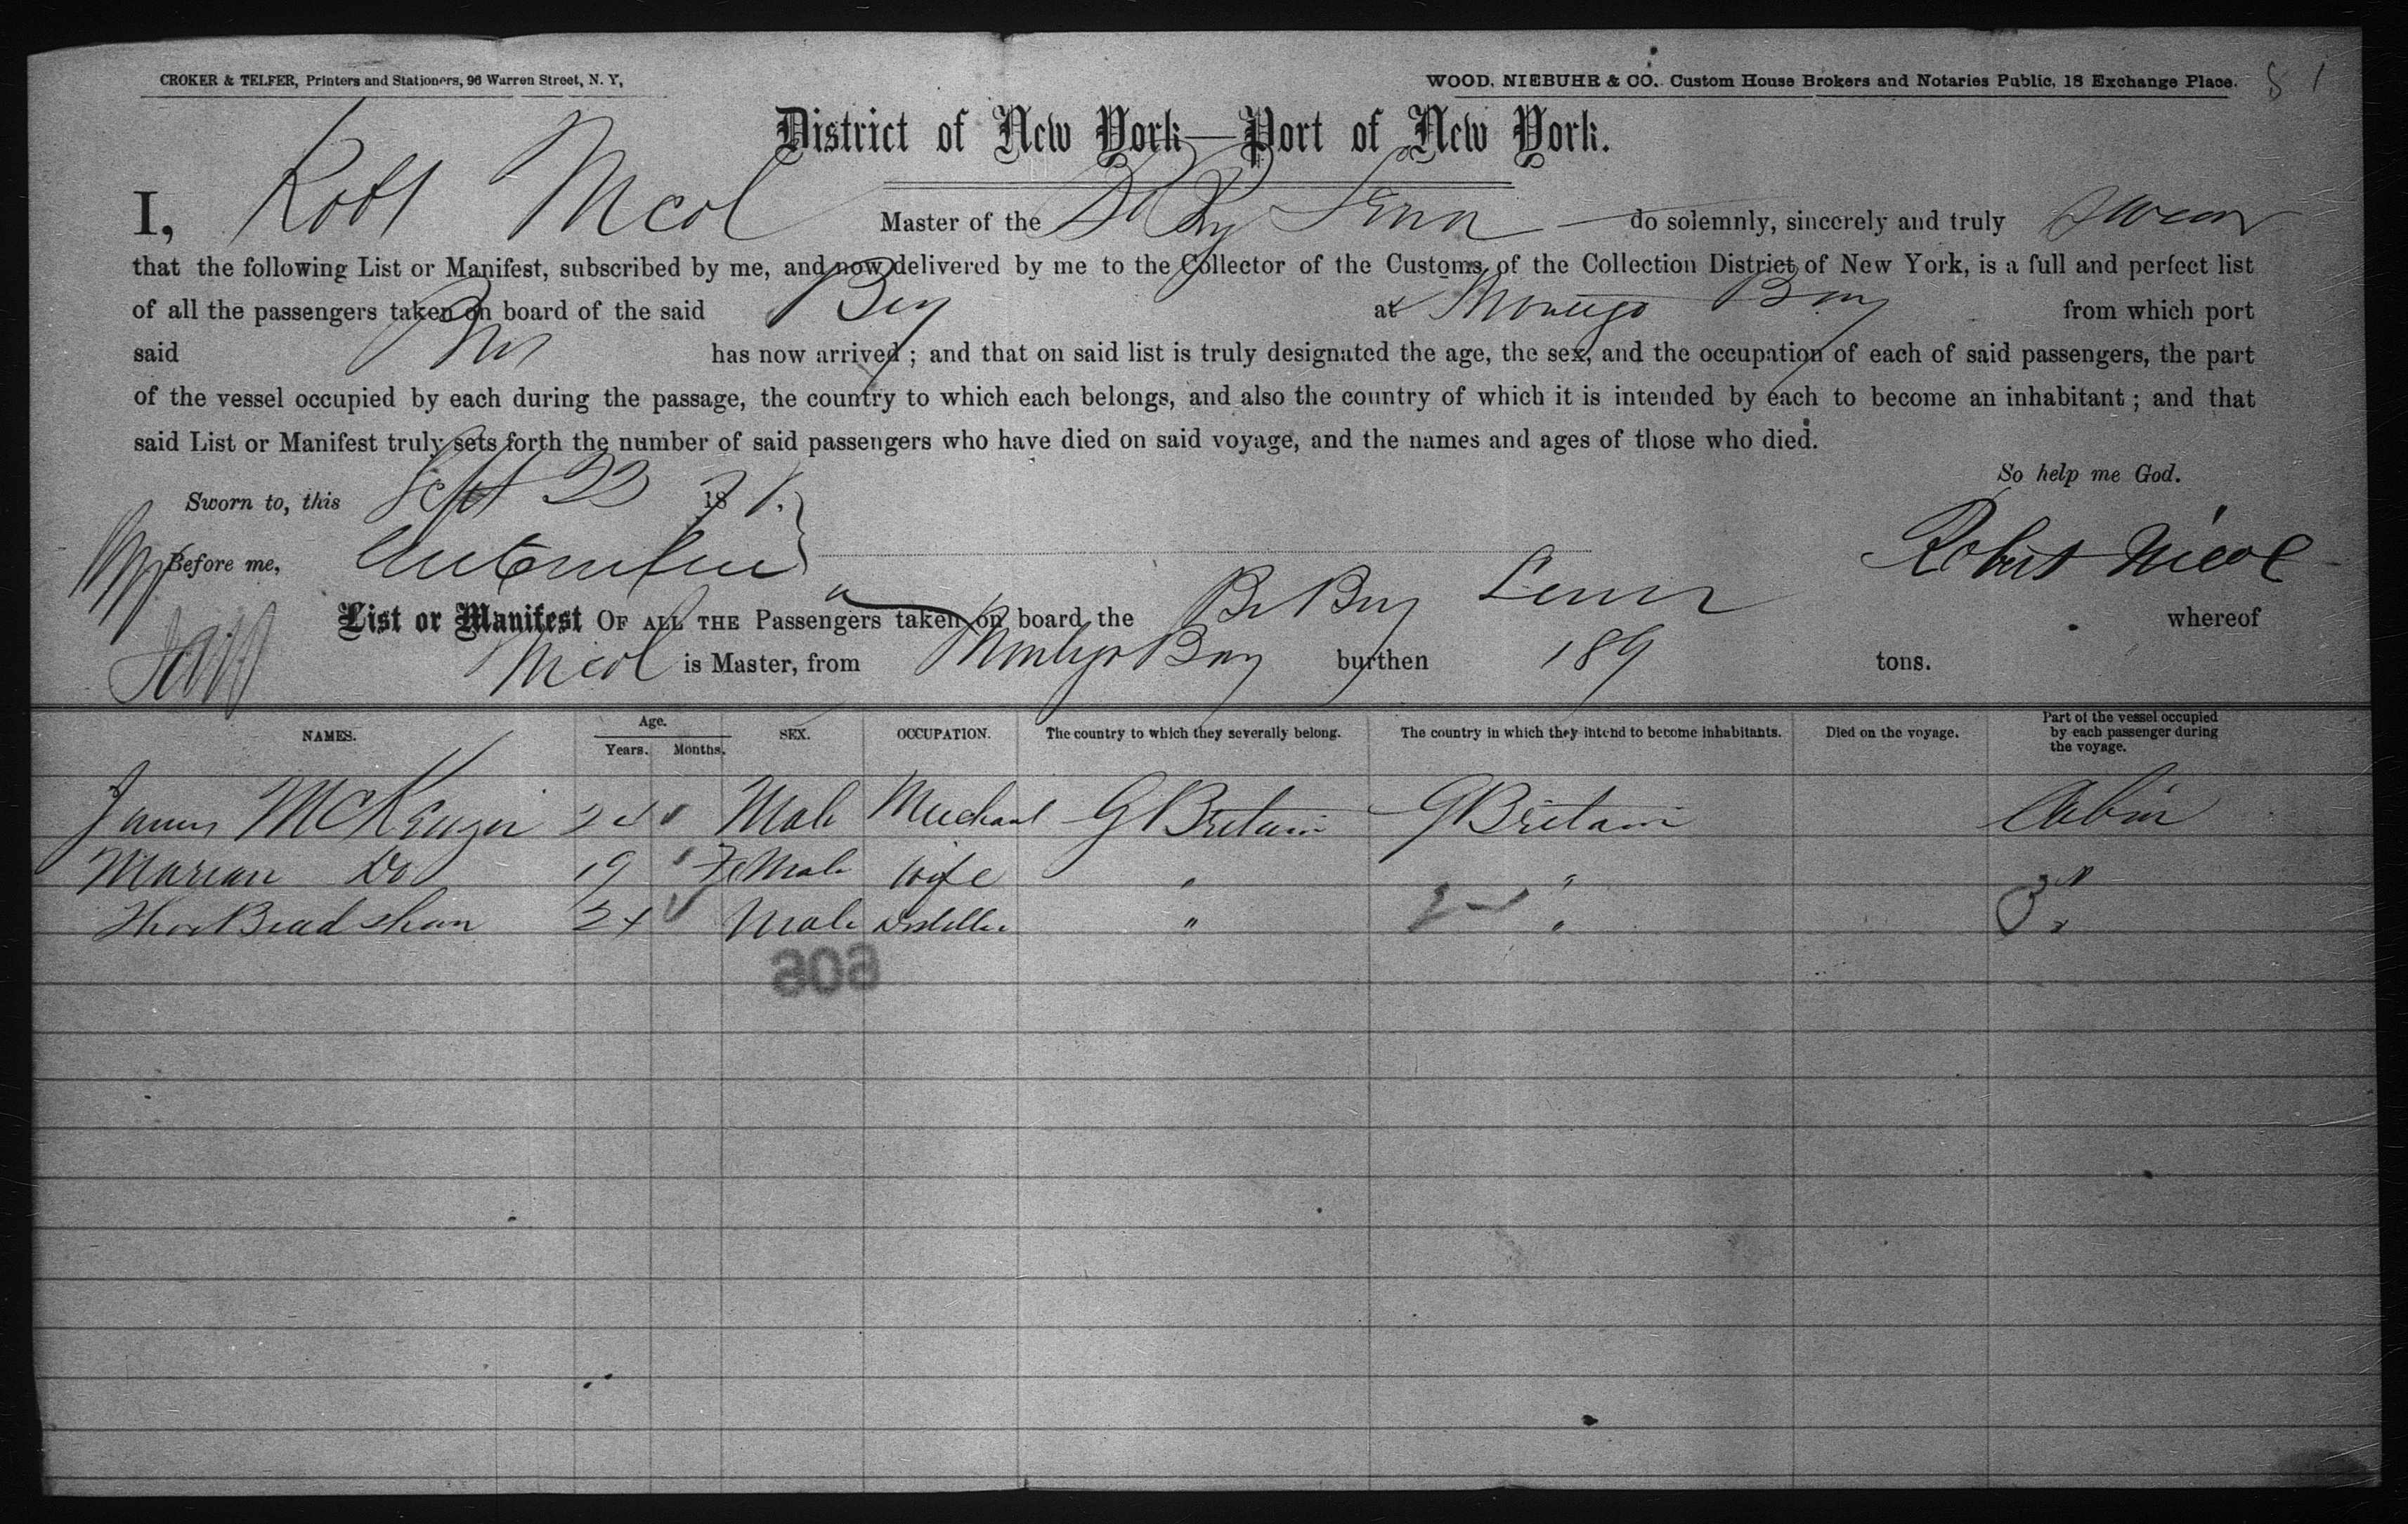 CROKER & TELFER, Printers and Stationers, 96 Warren Street, N. Y,
WOOD, NIEBUHR & CO. Custom House Brokers and Notaries Public, 18 Exchange Place. 81
District of New York—Port of New York.
I, Robt Nicol Master of the Br Brg do solemnly, sincerely and truly swear
that the following List or Manifest, subscribed by me, and now delivered by me to the Collector of the Customs of the Collection District of New York, is a full and perfect list
of all the passengers taken on board of the said Brg at Montego Bay from which port
said has now arrived ; and that on said list is truly designated the age, the sex, and the occupation of each of said passengers, the part
of the vessel occupied by each during the passage, the country to which each belongs, and also the country of which it is intended by each to become an inhabitant ; and that
said List or Manifest truly sets forth the number of said passengers who have died on said voyage, and the names and ages of those who died.
So help me God.
Sworn to, this Sept 22 18
Before me,
Robert Nicol
List or Manifest OF ALL THE Passengers taken on board the Br Brg whereof
Nicol is Master, from Montego Bay burthen 189 tons.
NAMES. Age. Years. Months. SEX. OCCUPATION. The country to which they severally belong. The country in which they intend to become inhabitants. Died on the voyage. Part of the vessel occupied by each passenger during the voyage.
James McKenzie Male Merchant G Britain G Britain Cabin
Marian Do 19 Female Wife " " "
Thos Bradshaw 24 Male Distiller " " "